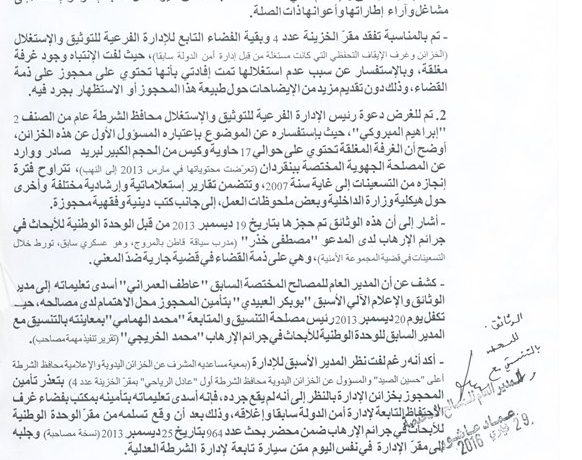 مشاغل وآراء إطاراتها وأعوانها ذات الصلة.
- تم بالمناسبة تفقد مقرّ الخزينة عدد 4 وبقية الفضاء التابع للإدارة الفرعية للتوثيق والإستغلال
(الخزائن وغرف الإيقاف التحفظي التي كانت مستغلة من قبل إدارة أمن الدولة سابقا)، حيث لفت الإنتباه وجود غرفة
مغلقة، وبالإستفسار عن سبب عدم استغلالها تمت إفادتي بأنها تحتوي على محجوز على ذمة
القضاء، وذلك دون تقديم مزيد من الإيضاحات حول طبيعة هذا المحجوز أو الاستظهار بجرد فيه.
2. تم للغرض دعوة رئيس الإدارة الفرعية للتوثيق والإستغلال محافظ الشرطة عام من الصنف 2
"إبراهيم المبروكي"، حيث بإستفساره عن الموضوع بإعتباره المسؤول الأول عن هذه الخزائن،
أوضح أن الغرفة المغلقة تحتوي على حوالي 17 حاوية وكيس من الحجم الكبير لبريد صادر ووارد
عن المصلحة الجهوية المختصة ببنقردان (تعرّضت محتوياتها في مارس 2013 إلى النهب)، تتراوح فترة
إنجازه من التسعينات إلى غاية سنة 2007، وتتضمن تقارير إستعلاماتية وإرشادية مختلفة وأخرى
حول هيكلية وزارة الداخلية وبعض ملحوظات العمل، إلى جانب كتب دينية وفقهية محجوزة.
- أشار إلى أن هذه الوثائق تم حجزها بتاريخ 19 ديسمبر 2013 من قبل الوحدة الوطنية للأبحاث في
جرائم الإرهاب لدى المدعو "مصطفى خذر" (مدرب سياقة قاطن بالمروج، وهو عسكري سابق، تورط خلال
التسعينات في قضية المجموعة الأمنية)، وهي على ذمة القضاء في قضية جارية ضد المعني.
- كشف عن أن المدير العام للمصالح المختصة السابق "عاطف العمراني" أسدى تعليماته إلى مدير
الوثائق والإعلام الآلي الأسبق "بوبكر العبيدي" بتأمين المحجوز محل الاهتمام لدى مصالحه، حيث
تكفل يوم 20 ديسمبر 2013 رئيس مصلحة التنسيق و المتابعة "محمد الهمامي" بمعاينته بالتنسيق مع
المدير السابق للوحدة الوطنية للأبحاث في جرائم الإرهاب "محمد الخريجي" (تقرير تنفيذ مهمة مصاحب).
- أكد أنه رغم لفت نظر المدير الأسبق للإدارة (بمعية مساعديه المشرف عن الخزائن اليدوية والإعلامية محافظ الشرطة
أعلى "حسين الصيد" والمسؤول عن الخزائن اليدوية محافظ الشرطة أول "عادل الرياحي" بمقرّ الخزينة عدد 4) بتعذر تأمين
المحجوز بخزائن الإدارة بالنظر إلى أنه لم يقع جرده، فإنه أسدى تعليماته بتأمينه بمكتب بفضاء غرف
الاحتفاظ التابعة لإدارة أمن الدولة سابقا وإغلاقه، وذلك بعد أن وقع تسلمه من مقرّ الوحدة الوطنية
للأبحاث في جرائم الإرهاب ضمن محضر بحث عدد 964 بتاريخ 25 ديسمبر 2013 (نسخة مصاحبة) وجلبه
إلى مقرّ الإدارة في نفس اليوم متن سيارة تابعة لإدارة الشرطة العدلية.
عماد عاشور
29 2016